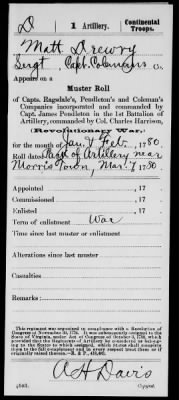 D | 1 | Artillery. | Continental Troops.
Matt Drewry
Sergt, Capt. Colemans Co.
Appears on a
Muster Roll
of Capts. Ragsdale's, Pendleton's and Coleman's
Companies incorporated and commanded by
Capt. James Pendleton in the 1st Battalion of
Artillery, commanded by Col. Charles Harrison,
(Revolutionary War,)
for the month of Jan & Feb, 1780.
Roll dated Park of Artillery near
Morris Town, Mar. 7, 1780
Appointed , 17
Commissioned , 17
Enlisted , 17
Term of enlistment War
Time since last muster or enlistment
Alterations since last muster
Casualties
Remarks:
This regiment was organized in compliance with a Resolution of
Congress of November 26, 1776. It was subsequently assigned to the
State of Virginia, under Act of Congress of October 3, 1780, which
provided that the Regiments of Artillery be considered as belong-
ing to the States to which assigned, which States should complete
them to the full complement and in every respect treat them as if
originally raised therein.—R. & P., 436,461.
A H Davis
Copyist.